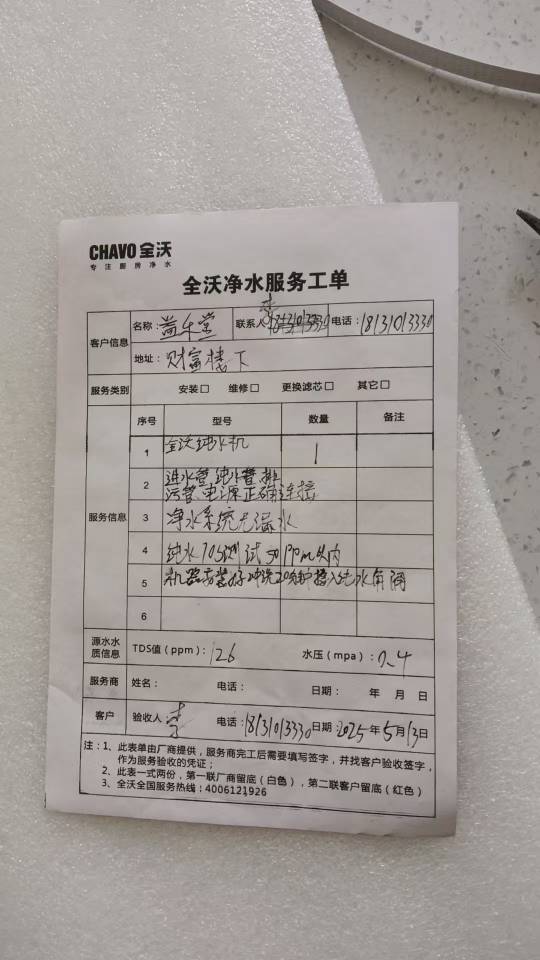 CHAVO 全沃
专注厨房净水
全沃净水服务工单
客户信息 名称：益年堂 联系人 李 电话：18131013330
地址：财富楼下
服务类别 安装□ 维修□ 更换滤芯□ 其它□
服务信息
序号 型号 数量 备注
1 全沃纯水机 1
2 进水管、纯水管、排
污管、电源正确连接
3 净水系统无漏水
4 纯水TDS测试50PPm以内
5 机器安装好冲洗20分钟接入纯水角阀
6
源水水质信息 TDS值（ppm）：126 水压（mpa）：0.4
服务商 姓名： 电话： 日期： 年 月 日
客户 验收人：李 电话：18131013330 日期：2025年5月13日
注：1、此表单由厂商提供，服务商完工后需要填写签字，并找客户验收签字，
作为服务验收的凭证；
2、此表一式两份，第一联厂商留底（白色），第二联客户留底（红色）
3、全沃全国服务热线：4006121926